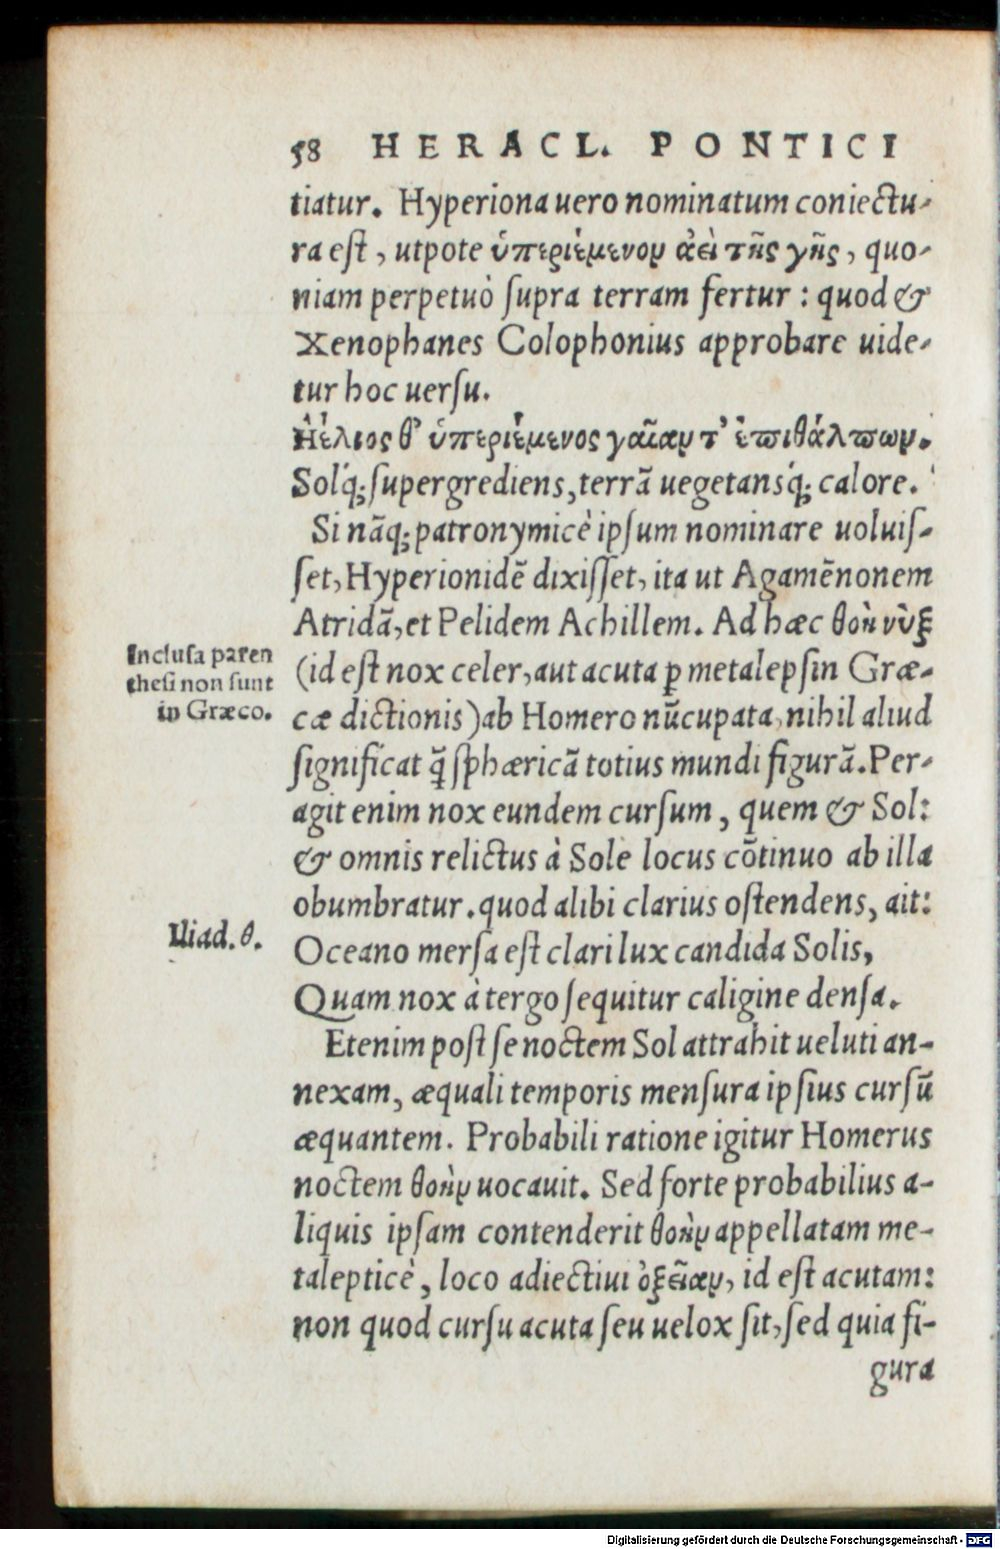 58 HERACL. PONTICI
tiatur. Hyperiona uero nominatum coniectu-
ra est, utpote ὑπεριέμενον ἀεὶ τῆς γῆς, quo-
niam perpetuò supra terram fertur: quod &
Xenophanes Colophonius approbare uide-
tur hoc uersu.
Ἠέλιος θ' ὑπεριέμενος γαῖαν τ' ἐπιθάλπων.
Solq́; supergrediens, terrā uegetansq́; calore.
Si nāq; patronymicè ipsum nominare uoluis-
set, Hyperionidē dixisset, ita ut Agamēnonem
Atridā, et Pelidem Achillem. Ad hæc θοὴ νὺξ
Inclusa paren
thesi non sunt
in Græco.
(id est nox celer, aut acuta ꝑ metalepsin Græ-
cæ dictionis) ab Homero nūcupata, nihil aliud
significat q̄̃ sphæricā totius mundi figurā. Per-
agit enim nox eundem cursum, quem & Sol:
& omnis relictus à Sole locus cōtinuo ab illa
obumbratur. quod alibi clarius ostendens, ait:
Iliad. θ.
Oceano mersa est clari lux candida Solis,
Quam nox à tergo sequitur caligine densa.
Etenim post se noctem Sol attrahit ueluti an-
nexam, æquali temporis mensura ipsius cursū
æquantem. Probabili ratione igitur Homerus
noctem θοὴν uocauit. Sed forte probabilius a-
liquis ipsam contenderit θοὴν appellatam me-
talepticè, loco adiectiui ὀξεῖαν, id est acutam:
non quod cursu acuta seu uelox sit, sed quia fi-
gura
Digitalisierung gefördert durch die Deutsche Forschungsgemeinschaft - DFG